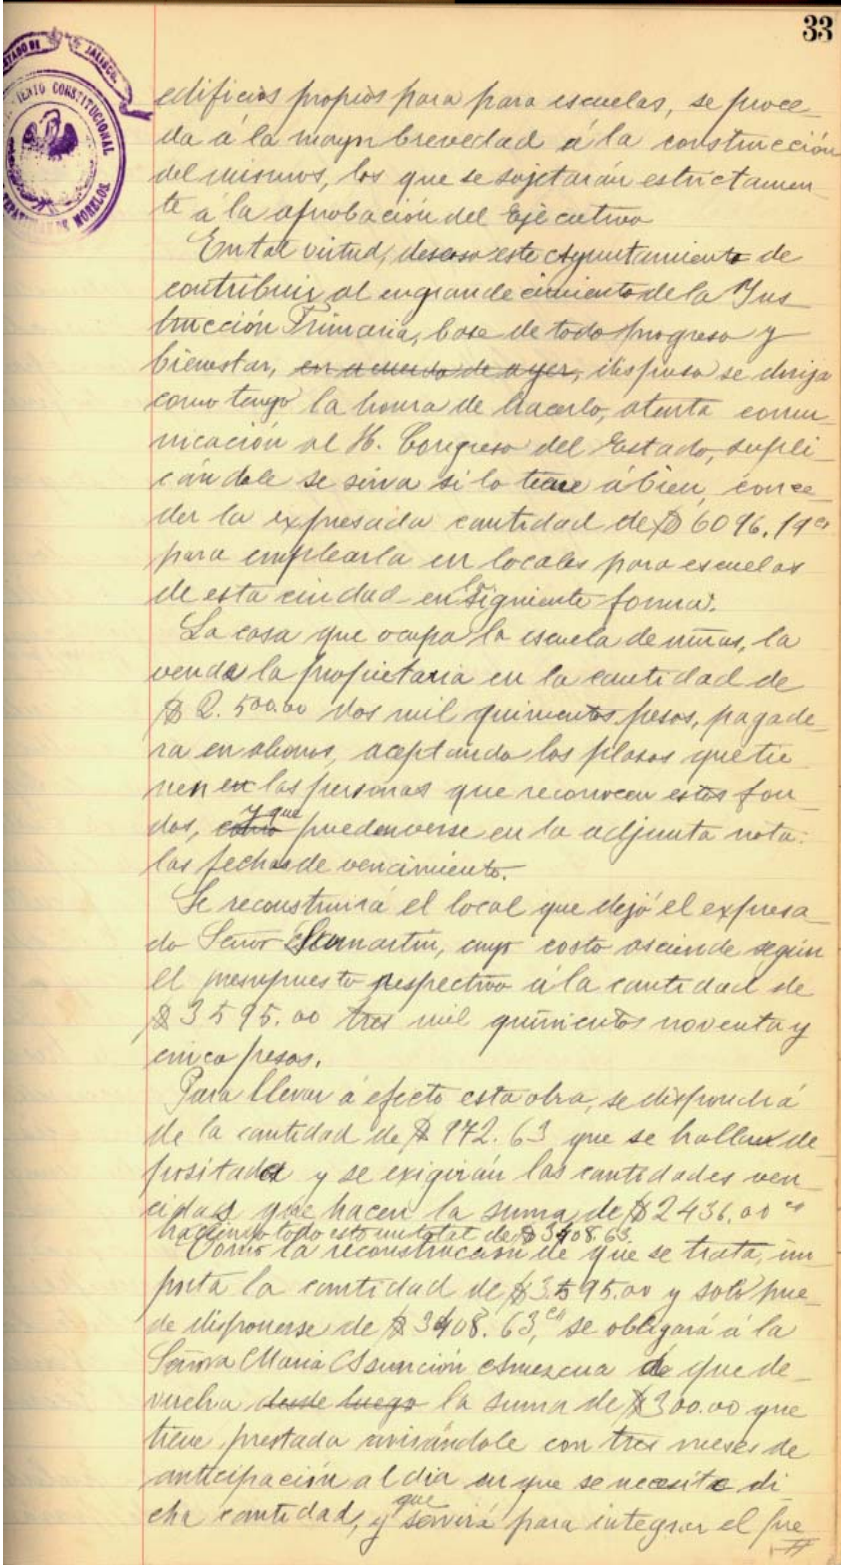 33
ESTADO DE JALISCO.
CONSTITUCIONAL
TEPATITLAN DE MORELOS.
edificios propios para para escuelas, se proce_
da á la mayor brevedad á la construcción
del mismos, los que se sujetarán estrictamen_
te á la aprobación del Ejecutivo
En tal virtud, deseoso este Ayuntamiento de
contribuir al engrandecimiento de la Ins_
trucción Primaria, base de todo progreso y
bienestar, en acuerdo de ayer, dispuso se dirija
como tengo la honra de hacerlo, atenta comu_
nicación al H. Congreso del Estado, supli_
cándole se sirva si lo tiene á bien, conce_
der la expresada cantidad de $6096.19 cs
para emplearla en locales para escuelas
de esta ciudad en la siguiente forma:
La casa que ocupa la escuela de niñas, la
vende la propietaria en la cantidad de
$2.500.00 dos mil quinientos pesos, pagade_
ra en abonos, aceptando los plasos que tie_
nen en las personas que reconocen estos fon_
dos, como y que pueden verse en la adjunta nota
las fechas de vencimiento.
Se reconstruirá el local que dejó el expresa_
do Señor Sanmartín, cuyo costo asciende según
el presupuesto respectivo á la cantidad de
$3595.00 tres mil quinientos noventa y
cinco pesos.
Para llevar á efecto esta obra, se dispondrá
de la cantidad de $972.63 que se hallan de_
positada y se exigirán las cantidades ven_
cidas que hacen la suma de $2436.00 cs
haciendo todo esto un total de $3408.63.
Como la reconstrucción de que se trata, im_
porta la cantidad de $3.595.00 y solo pue_
de disponerse de $3408.63, cs se obligará á la
Señora María Asunción Amezcua de que de_
vuelva desde luego la suma de $300.00 que
tiene prestada avisándole con tres meses de
anticipación al día en que se necesite di_
cha cantidad, y que servirá para integrar el pre_